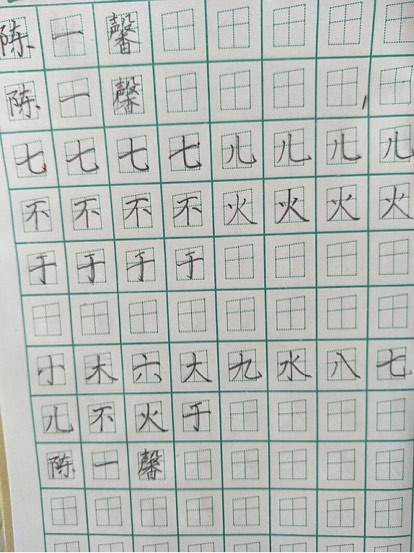 陈一馨
陈一馨
七七七七儿儿儿儿
不不不不火火火火
于于于于
小木六大九水八七
儿不火于
陈一馨